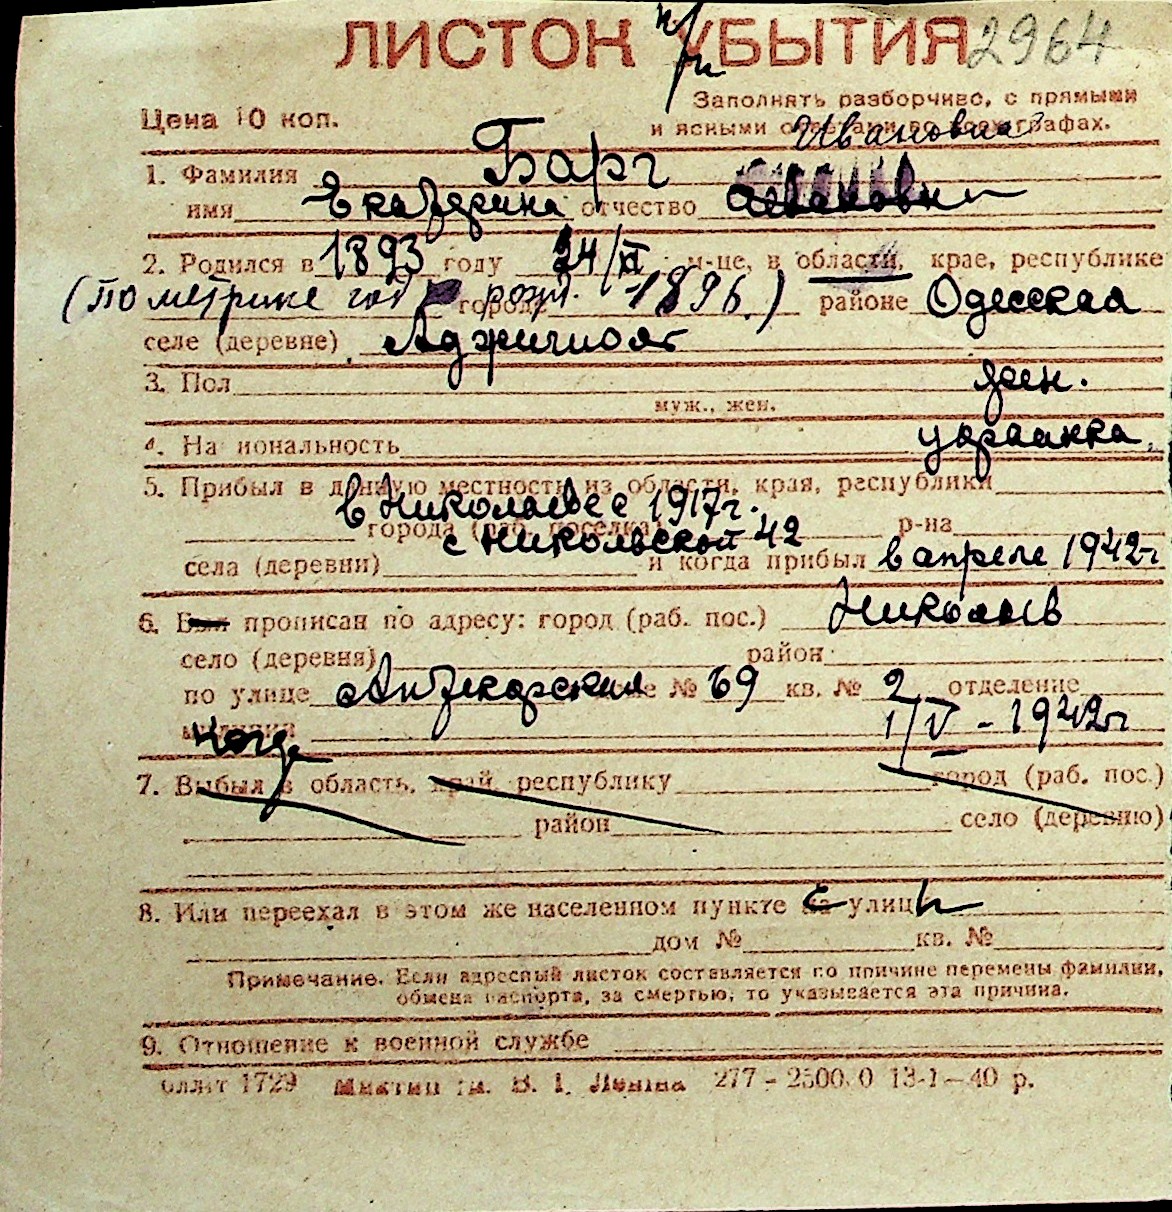 ЛИСТОК УБЫТИЯ 2964
Цена 10 коп.
Заполнять разборчиво, с прямыми
и ясными ответами во всех графах.
Ивановна
1. Фамилия Барг
имя Екатерина отчество
2. Родился в 1893 году 24/II м-це, в области, крае, республике
(по метрике год рожд. 1896.) городе районе Одесская
селе (деревне) Аджигиояг
3. Пол жен.
муж., жен.
4. На иональность украинка
5. Прибыл в данную местность из области, края, республики
в Николаеве с 1917 г.
города (раб. поселка) р-на
с Никольской 42
села (деревни) и когда прибыл в апреле 1942 г
6. Был прописан по адресу: город (раб. пос.) Николаев
село (деревня) район
по улице № 69 кв. № 2 отделение
милиции 1/V - 1942 г
Когда
7. Выбыл в область, край, республику город (раб. пос.)
район село (деревню)
8. Или переехал в этом же населенном пункте с улицы
дом № кв. №
Примечание. Если адресный листок составляется по причине перемены фамилии,
обмена паспорта, за смертью, то указывается эта причина.
9. Отношение к военной службе
1729 им. В. И. Ленина 277-2500.0 13-I-40 р.